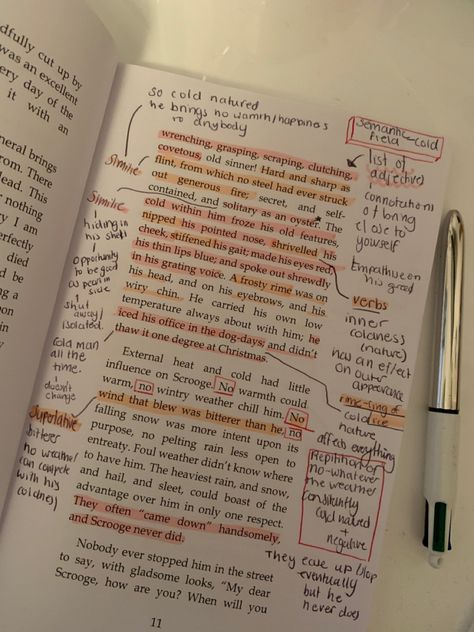 dfully cut up by
was an excellent
ery day of the
it with an
neral brings
rom. There
lead. This
nothing
ry I am
erfectly
died
d be
g a
So cold natured
he brings no warmth/happiness
to anybody
Simile
Simile
hiding in
his shell
opportunity
to be good
as pearl in
side
shut
away/
isolated.
Cold man
all the
time.
doesn't
change
Superlative
bitter
no weather
can compete
with his
coldness
wrenching, grasping, scraping, clutching,
covetous, old sinner! Hard and sharp as
flint, from which no steel had ever struck
out generous fire; secret, and self-
contained, and solitary as an oyster. The
cold within him froze his old features,
nipped his pointed nose, shrivelled his
cheek, stiffened his gait; made his eyes red,
his thin lips blue; and spoke out shrewdly
in his grating voice. A frosty rime was on
his head, and on his eyebrows, and his
wiry chin. He carried his own low
temperature always about with him; he
iced his office in the dog-days; and didn't
thaw it one degree at Christmas.
External heat and cold had little
influence on Scrooge. No warmth could
warm, no wintry weather chill him. No
wind that blew was bitterer than he, no
falling snow was more intent upon its
purpose, no pelting rain less open to
entreaty. Foul weather didn't know where
to have him. The heaviest rain, and snow,
and hail, and sleet, could boast of the
advantage over him in only one respect.
They often "came down" handsomely,
and Scrooge never did.
Nobody ever stopped him in the street
to say, with gladsome looks, "My dear
Scrooge, how are you? When will you
11
Semantic-cold
field
list of
adjectives
connotations
of being
close to
yourself
Empathise on
his greed
verbs
inner
coldness
(nature)
has an effect
on outer
appearance
cold
nature
affect everything
Repitition of
no-whatever
the weather
constantly
cold natured
+
negative
They ease up/stop
eventually
but he
never does